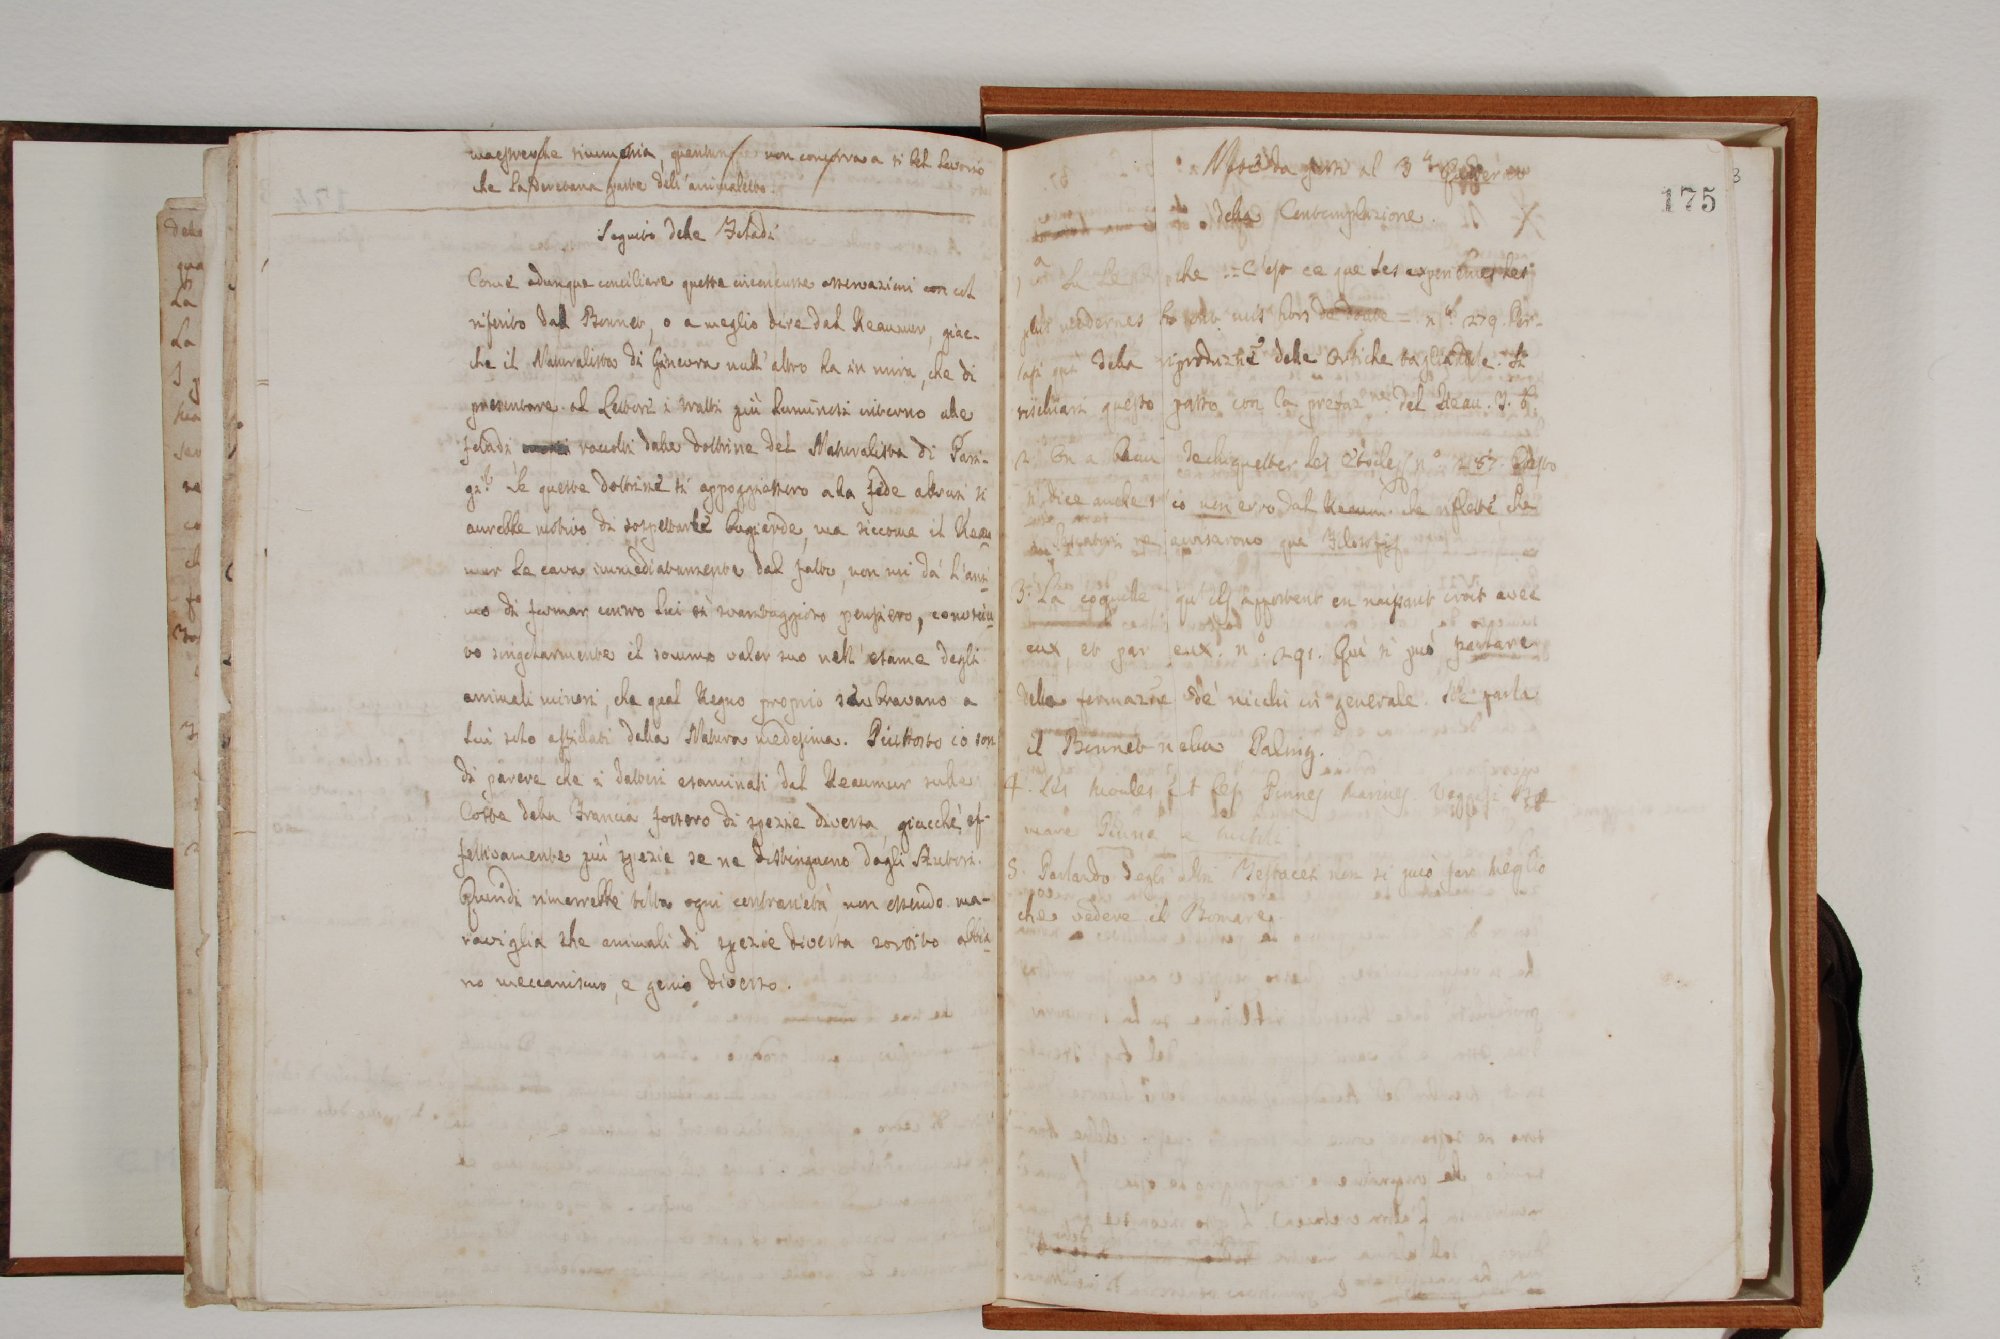 maestrevole simmetria, quantunque non concorra a si bel lavorio
che la deretana parte dell'animaletto.
Seguito delle Foladi
Come adunque conciliare queste circoncise osservazioni con col
riferito dal Bonnet, o a meglio dire dal Reaumur, giac-
che il Naturalista di Ginevra null'altro ha in mira, che di
presentare al Lettore i tratti più luminosi intorno alle
foladi raccolti dalle dottrine del Naturalista di Pari-
gi? Se queste dottrine si appoggiassero alla fede altrui si
aurebbe motivo di sospettarle bugierde, ma siccome il Reau
mur le cava immediatamente dal fatto, non mi dà l'ani
mo di formar contro lui sì svantaggioso pensiero, conosciu
to singolarmente il sommo valor suo nell'esame degli
animali minori, che qual Regno proprio sembravano a
lui solo affidati dalla Natura medesima. Piuttosto io son
di parere che i datteri esaminati dal Reaumur sulle
Coste della Francia fossero di spezie diversa, giacchè ef-
fettivamente più spezie se ne distinguono dagli Autori.
Quindi rimarrebbe tolta ogni contrarietà, non essendo ma-
raviglia che animali di spezie diversa sortito abbia
no meccanismo, e genio diverso.
175
Note da farsi al 3º Quaderno
della Contemplazione.
1 che = C'est ce que les experiences les
plus modernes ont mis hors de doute = nº 279. Par-
lasi quì della riproduzne delle Ortiche tagliate. Si
rischiari questo passo con la prefaz.ne del Reau. T. 6.
2 On a beau dechiquetter les étoiles nº 287. Questo
si dice anche s'io non erro dal Reaum. che riflette, che
i Pescatori se avvisarono que
3. La coquille, qu'ils apportent en naissant croit avec
eux, et par eux. nº. 291. Quì si può parlare
della formazne de' nicchi in generale. Ne parla
il Bonnet nella Paling.
4. Les Moules, et les Pinnes marines. Veggasi Bo
mare Pinne e Muscoli
5. Parlando degli altri Testacei non si può far meglio
che vedere il Bomare.